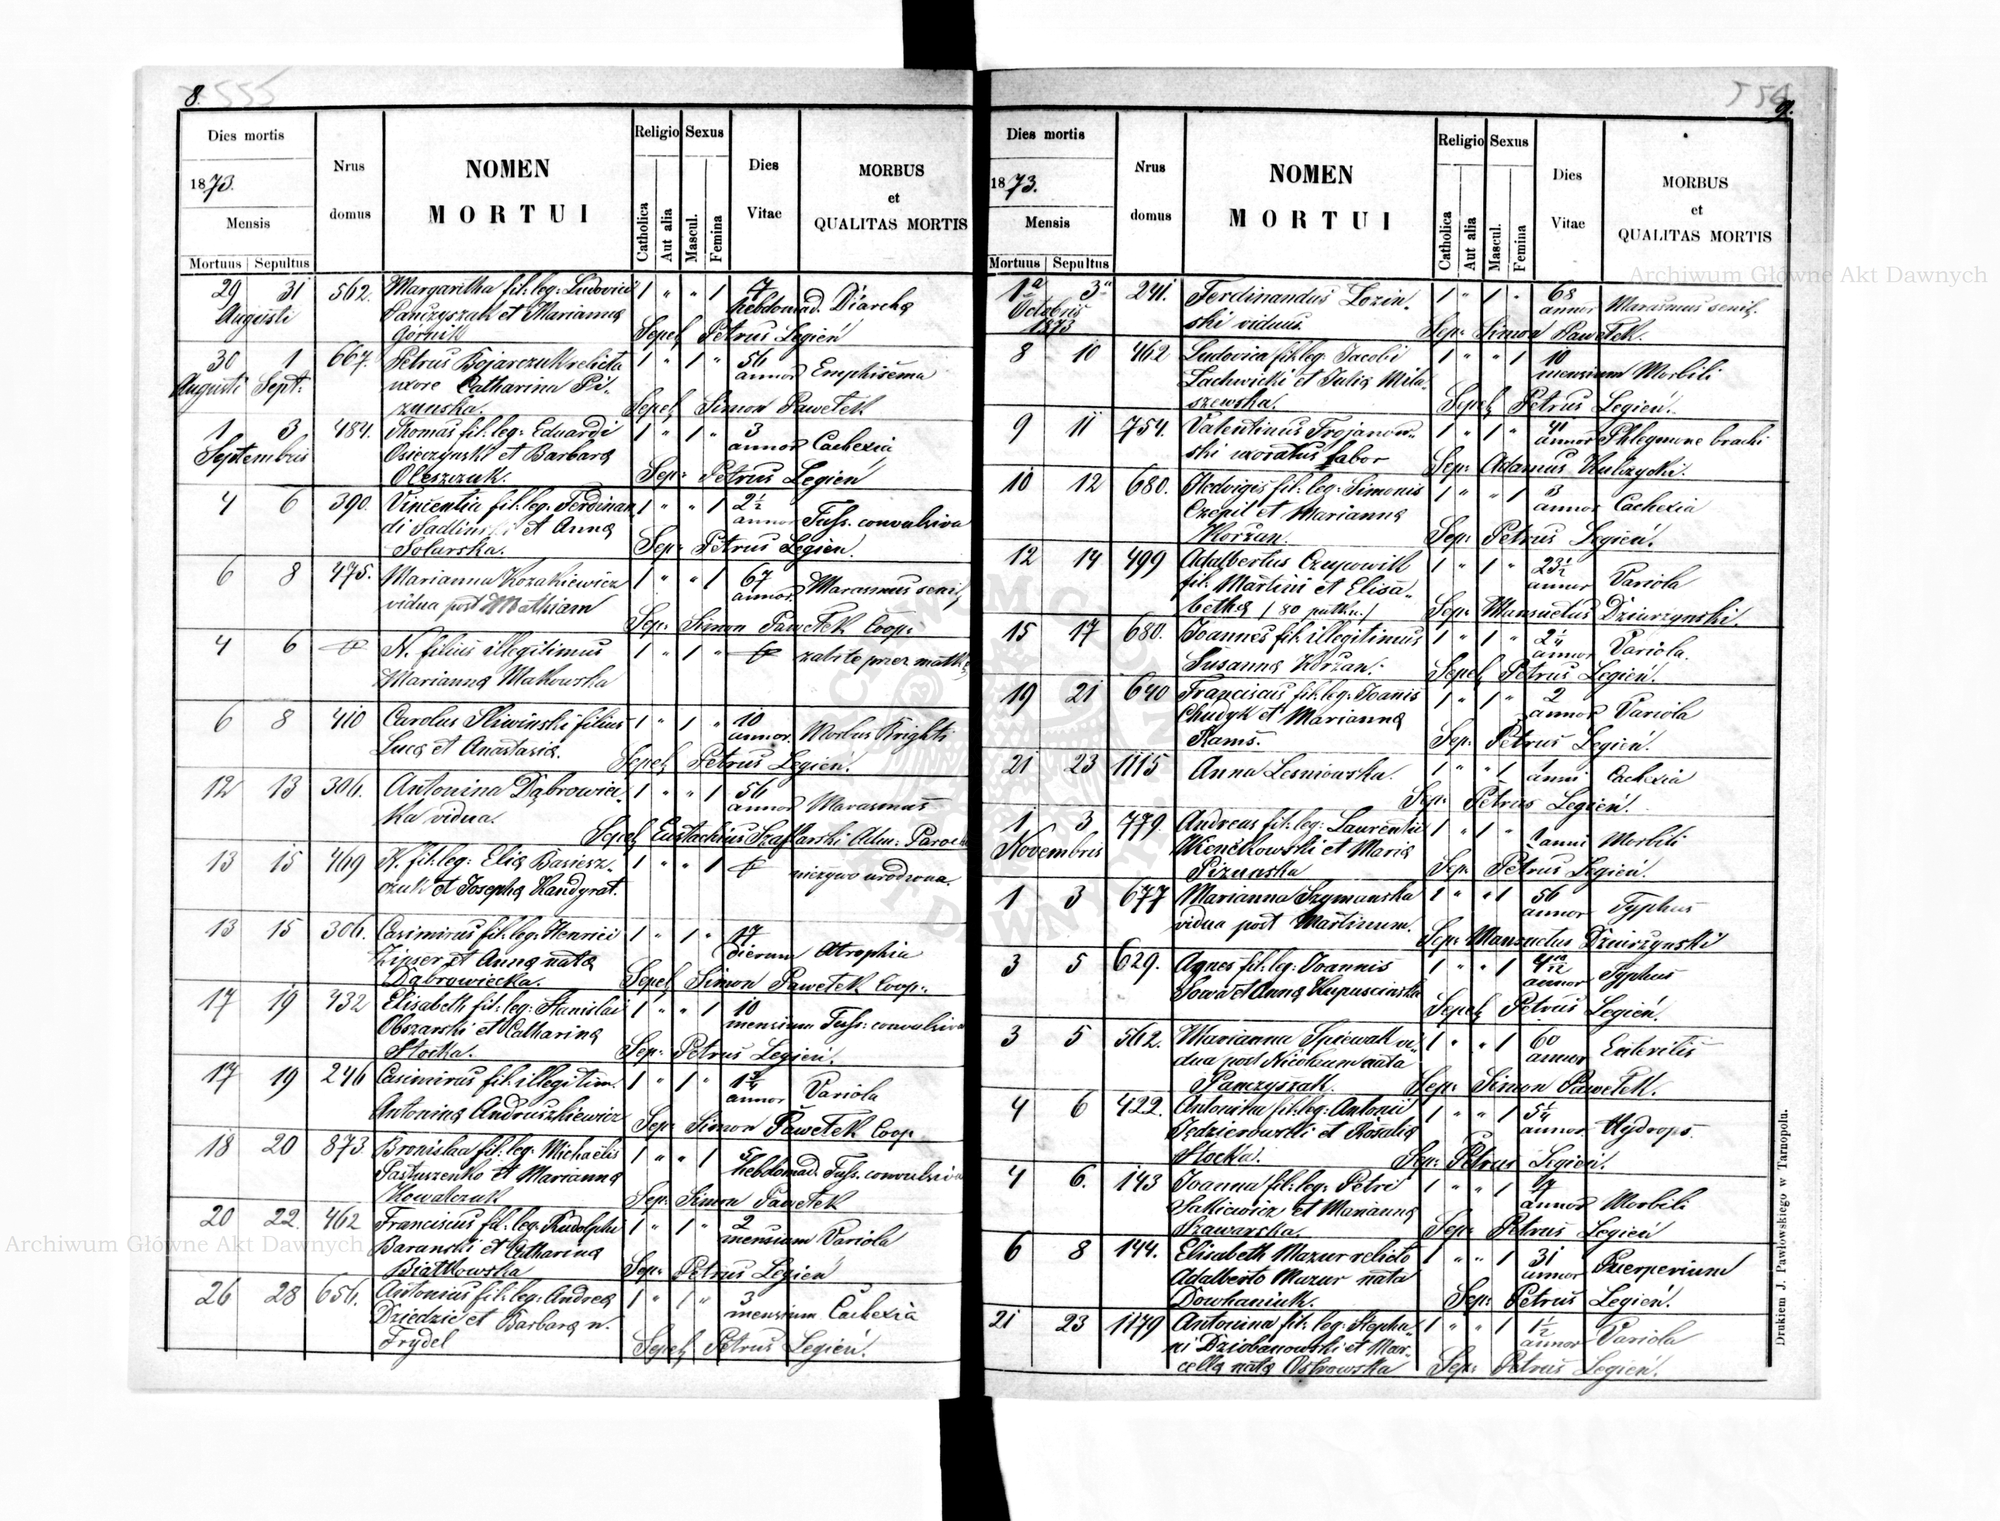 8.
555
Dies mortis
Nrus domus
NOMEN MORTUI
Religio
Sexus
Dies Vitae
MORBUS et QUALITAS MORTIS
1873.
Mensis
Mortuus Sepultus
Catholica
Aut alia
Mascul.
Femina
29 31 562. Margaritha fil: leg: Ludovici 1 " " 1 7
Augusti Panczyszak et Marianna hebdomad. Diarchą
Górnik Sepel Petrus Legień
30 1 667. Petrus Bojarczuk relicta 1 " 1 " 56
Augusti Sept: uxore Catharina Pi- annor Emphisema
zunska. Sepel Simon Pawełek
1 3 484. Thomas fil: leg: Eduardi 1 " 1 " 3
Septembris Osieczynski et Barbara annor Cachexia
Oleszczuk. Sep: Petrus Legień
4 6 390. Vincentia fil: leg: Ferdinan 1 " " 1 2½
di et Anna annor Tuss. convulsiva
Solarska. Sep: Petrus Legien.
6 8 475. Marianna Kozakiewicz 1 " " 1 67
vidua post Mathiam annor. Marasmus senil
Sep: Simon Pawełek Coop:
4 6 N. filius illegitimus 1 " 1 " zabite przez matkę
Marianna Makowska
6 8 410 Carolus Sliwinski filius 1 " 1 " 10
Luca et Anastasia. annor. Morbus Brighti
Sepel Petrus Legień.
12 13 306. Antonina Dąbrowiec- 1 " " 1 56
ka vidua. annor Marasmus
Sepel Eustachius Szaflarski Adm: Paroch
13 15 469 N. fil: leg: Elia 1 " " 1
czuk et Josepha Kandyrat. nieżywo urodzona.
13 15 306. Casimirus fil: leg: Henrici 1 " 1 " 17
Zipser et Anna nata dierum Atrophia
Dąbrowiecka. Sepel Simon Pawełek Coop:
17 19 432 Elisabeth fil: leg: Stanislai 1 " " 1 10
Obszarski et Catharina mensium Tuss: convulsiva
Stocka. Sep: Petrus Legień.
17 19 246 Casimirus fil: illegitim. 1 " 1 " 1¾
Antonina Andruszkiewicz annor Variola
Sep: Simon Pawełek Coop
18 20 873. Bronisla fil: leg: Michaelis 1 " " 1 5
Pastuszenko et Marianna hebdomad. Tuss. convulsiva
Kowalczuk Sep: Simon Pawełek
20 22. 462 Franciscus fil: leg: Rudolphi 1 " 1 " 2
Baranski et Catharina mensium Variola
Białkowska Sep: Petrus Legień
26 28 656. Antonius fil: leg: Andrea 1 " 1 " 3
Dziedzic et Barbara n. mensium Cachexia
Frydel Sepel Petrus Legień.
554
9.
Dies mortis
Nrus domus
NOMEN MORTUI
Religio
Sexus
Dies Vitae
MORBUS et QUALITAS MORTIS
1873.
Mensis
Mortuus Sepultus
Catholica
Aut alia
Mascul.
Femina
1a 3a 241. Ferdinandus Lozin- 1 " 1 " 68
Octobris ski viduus. annor Marasmus senil.
1873 Sep: Simon Pawełek.
8 10 462 Ludovica fil: leg: Jacobi 1 " " 1 10
Lachwicki et Julia Mila- mensium Morbili
szewska. Sepel Petrus Legień.
9 11 754. Valentinus Trojanow- 1 " 1 " 41
ski uxoratus fabor annor Phlegmone brachi
Sep: Adamus Kulczycki.
10 12 680. Hedvigis fil: leg: Simonis 1 " " 1 3
Czepil et Marianna annor Cachexia
Korzan. Sep: Petrus Legień.
12 14 499 Adalbertus Czupowill 1 " 1 " 23½
fil: Martini et Elisa- annor Variola
betha / 80 / Sep: Mansuetus Dziurzynski.
15 17 680. Joannes fil: illegitimus 1 " 1 " 2¼
Susanna Korzan. annor Variola.
Sepel Petrus Legień.
19 21 640 Franciscus fil: leg: Joanis 1 " 1 " 2
Chudyk et Marianna annor Variola
Kams. Sep: Petrus Legień.
21 23 1115 Anna Lesniowska. 1 " " 1 anni Cachexia
Sep: Petrus Legień.
1 3 779. Andreas fil: leg: Laurentii 1 " 1 "
Novembris Wienckowski et Maria anni Morbili
Piznaska Sep: Petrus Legień.
1 3 677 Marianna Szymanska 1 " " 1 56
vidua post Martinum. annor Typhus
Sep: Mansuetus Dziurzynski
3 5 629. Agnes fil: leg: Joannis 1 " " 1 4 10/12
Sowa et Anna Kapuscinska annor Typhus
Sepel Petrus Legień.
3 5 562. Marianna Spiewak vi- 1 " " 1 60
dua post Nicolaum nata annor Enteritis
Panczyszak. Sep: Simon Pawełek.
4 6 422. Antonina fil: leg: Antonii 1 " " 1 5¼
Jędzierowski et Rosalia annor. Hydrops.
Stocka. Sep: Petrus Legień.
4 6. 143 Joanna fil: leg: Petri 1 " " 1
Salkiewicz et Marianna annor Morbili
Szawarska. Sep: Petrus Legień
6 8 144. Elisabeth Mazur relicto 1 " " 1 31
Adalberto Mazur nata annor Puerperium
Dowhaniuk. Sep: Petrus Legień.
21 23 1179 Antonina fil: leg: Stepha- 1 " " 1 1½
ni Dziobanowski et Mar- annor Variola
cella nata Ostrowska Sep: Petrus Legień.
Drukiem J. Pawłowskiego w Tarnopolu.
Archiwum Główne Akt Dawnych
Archiwum Główne Akt Dawnych